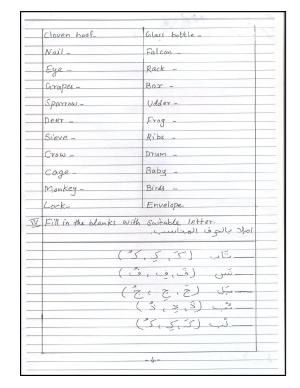 Cloven hoof - Glass bottle -
Nail - Falcon -
Eye - Rack -
Grapes - Box -
Sparrow - Udder -
Deer - Frog -
Sieve - Ribs -
Crow - Drum -
Cage - Baby -
Monkey - Birds -
Lock - Envelope
IV Fill in the blanks with Suitable letter.
املأ بالحرف المناسب.
ــتاب (كَ ، كِ ، كُ)
(قَ ، قِ ، قُ)
ــبل (جَ ، جِ ، جُ)
ــب (دَ ، دِ ، دُ)
ــلب (كَ ، كِ ، كُ)